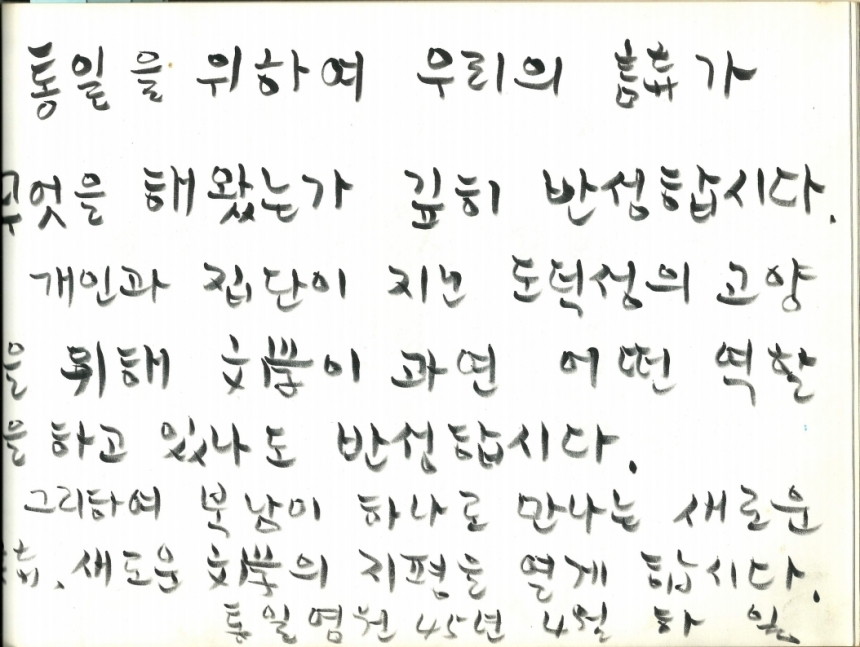 통일을 위하여 우리의 詩가
무엇을 해왔는가 깊히 반성합시다.
개인과 집단이 지닌 도덕성의 고양
을 위해 文學이 과연 어떤 역할
을 하고 있나도 반성합시다.
그리하여 북남이 하나로 만나는 새로운
詩, 새로운 文學의 지평을 열게 합시다.
통일염원 45년 4월 하